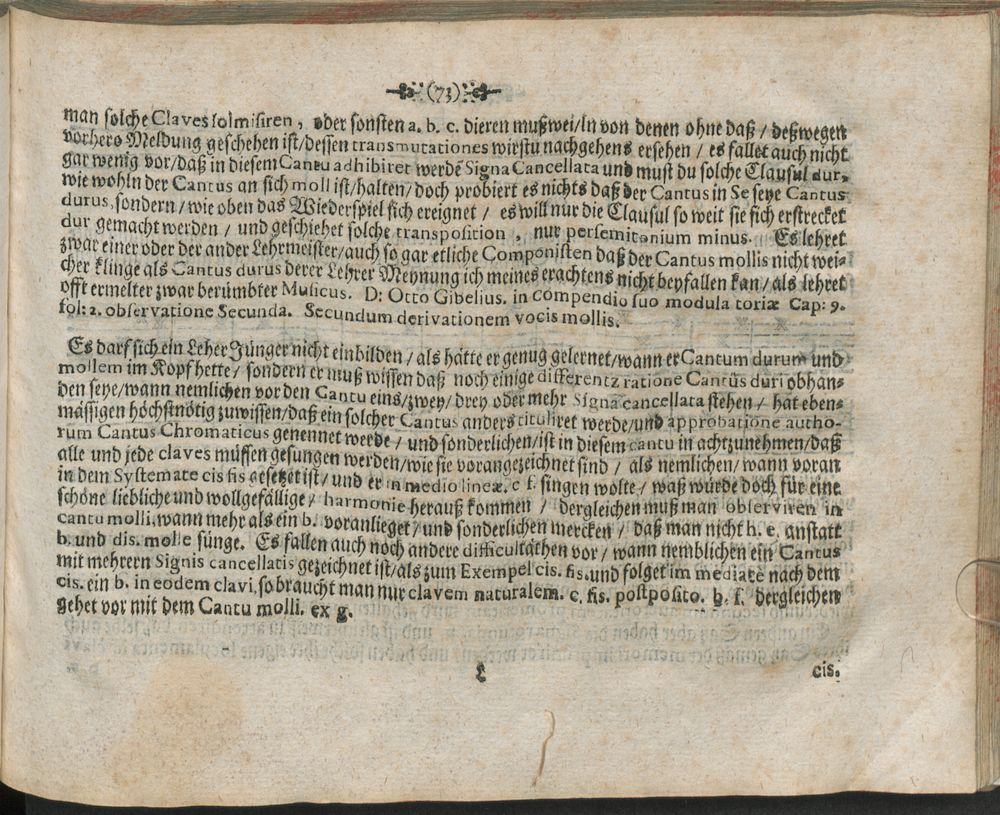 (73)
man solche Claves solmisiren, oder sonsten a. b. c. dieren muß wei/ln von denen ohne daß / deßwegen
vorhero Meldung geschehen ist/dessen transmutationes wirstu nachgehens ersehen / es fallet auch nicht
gar wenig vor/daß in diesem Cantu adhibiret werdē Signa Cancellata und must du solche Clausul dur-
wie wohln der Cantus an sich moll ist/halten/doch probiert es nichts daß der Cantus in Se seye Cantus
durus, sondern/wie oben das Wiederspiel sich ereignet / es will nur die Clausul so weit sie sich erstrecket
dur gemacht werden / und geschiehet solche transposition, nur per semitonium minus. Es lehret
zwar einer oder der ander Lehrmeister/auch so gar etliche Componisten daß der Cantus mollis nicht wei-
cher klinge als Cantus durus derer Lehrer Meynung ich meines erachtens nicht beyfallen kan/als lehret
offt ermelter zwar berümbter Musicus. D: Otto Gibelius. in compendio suo modulatoriæ Cap: 9.
fol: 2. observatione Secunda. Secundum derivationem vocis mollis.
Es darf sich ein Leher Jünger nicht einbilden / als hätte er genug gelernet/wann er Cantum durum und
mollem im Kopf hette / sondern er muß wissen daß noch einige differentz ratione Cantûs duri obhan-
den seye/wann nemlichen vor den Cantu eins/zwey/drey oder mehr Signa cancellata stehen / hat eben-
mässigen höchstnötig zuwissen/daß ein solcher Cantus anders tituliret werde/und approbatione autho-
rum Cantus Chromaticus genennet werde / und sonderlichen/ist in diesem cantu in acht zunehmen/daß
alle und jede claves müssen gesungen werden/wie sie vorangezeichnet sind / als nemlichen/wann voran
in dem Systemate cis fis gesetzet ist/und er in medio lineæ. c f. singen wolte/waß würde doch für eine
schöne liebliche und wollgefällige / harmonie herauß kommen / dergleichen muß man observiren in
cantu molli, wann mehr als ein b. voranlieget/und sonderlichen mercken / daß man nicht h. e. anstatt
b. und dis. molle sünge. Es fallen auch noch andere difficultäthen vor/wann nemblichen ein Cantus
mit mehrern Signis cancellatis gezeichnet ist/als zum Exempel cis. fis. und folget im mediate nach dem
cis. ein b. in eodem clavi, so braucht man nur clavem naturalem. c. fis. postposito. b. f. dergleichen
gehet vor mit dem Cantu molli. ex g.
cis.